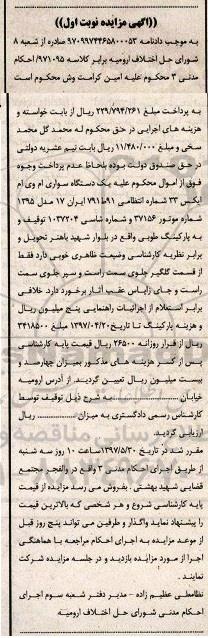 ((آگهی مزایده نوبت اول))
به موجب دادنامه ۹۷۰۹۹۷۴۴۶۵۸۰۰۰۵۳ صادره از شعبه ۸
شورای حل اختلاف ارومیه برابر کلاسه ۹۷۱۰۹۵/ احکام
مدنی ۳ محکوم علیه امین کرامت وش محکوم است
به پرداخت مبلغ ۲۲۹/۷۹۴/۲۶۱ ریال از بابت خواسته و
هزینه های اجرایی در حق محکوم له محمد گل محمد
سخی و مبلغ ۱۱/۴۸۰/۰۰۰ ریال بابت نیم عشریه دولتی
در حق صندوق دولت بوده بلحاظ عدم پرداخت وجوه
فوق از اموال محکوم علیه یک دستگاه سواری ام وی ام
ایکس ۳۳ شماره انتظامی ۷۹۱ب۹۱ ایران ۱۷ مدل ۱۳۹۵
شماره موتور ۳۷۱۵۶ و شماره شاسی ۱۰۳۷۲۰۴ توقیف و
به پارکینگ طوبی واقع در بلوار شهید باهنر تحویل و
برابر نظریه کارشناسی وضعیت ظاهری خوبی دارد فقط
از قسمت گلگیر جلوی سمت راست و سپر جلوی سمت
راست و جای زاپاس عقب آثار برخورد دارد. خلافی
برابر استعلام از اجرائیات راهنمایی پنج میلیون ریال
و هزینه پارکینگ تا تاریخ ۱۳۹۷/۰۴/۲۰ مبلغ ۳۴۱۸۵۰۰
ریال از قرار روزانه ۲۶۵۰۰ ریال قیمت پایه کارشناسی
پس از کسر هزینه های مذکور بمیزان چهارصد و
بیست میلیون ریال تعیین گردیدند. از آدرس ارومیه
خیابان ............ به شرح ذیل توقیف توسط
کارشناس رسمی دادگستری به میزان ............ ریال
ارزیابی گردید.
مقرر شد در تاریخ ۱۳۹۷/۵/۳۰ ساعت ۱۰ روز سه شنبه
از طریق اجرای احکام مدنی ۳ واقع در والفجر مجتمع
قضایی شهید بهشتی، بفروش می رسد مزایده از قیمت
پایه کارشناسی شروع و هر شخصی که بالاترین قیمت
را پیشنهاد نماید واگذار و طرفین می تواند پنج روز قبل
از موعد مزایده به اجرای احکام مراجعه با هماهنگی
اجرا از مورد مزایده بازدید و در جلسه مزایده شرکت
نمایند.
نظامعلی عظیم زاده - مدیر دفتر شعبه سوم اجرای
احکام مدنی شورای حل اختلاف ارومیه